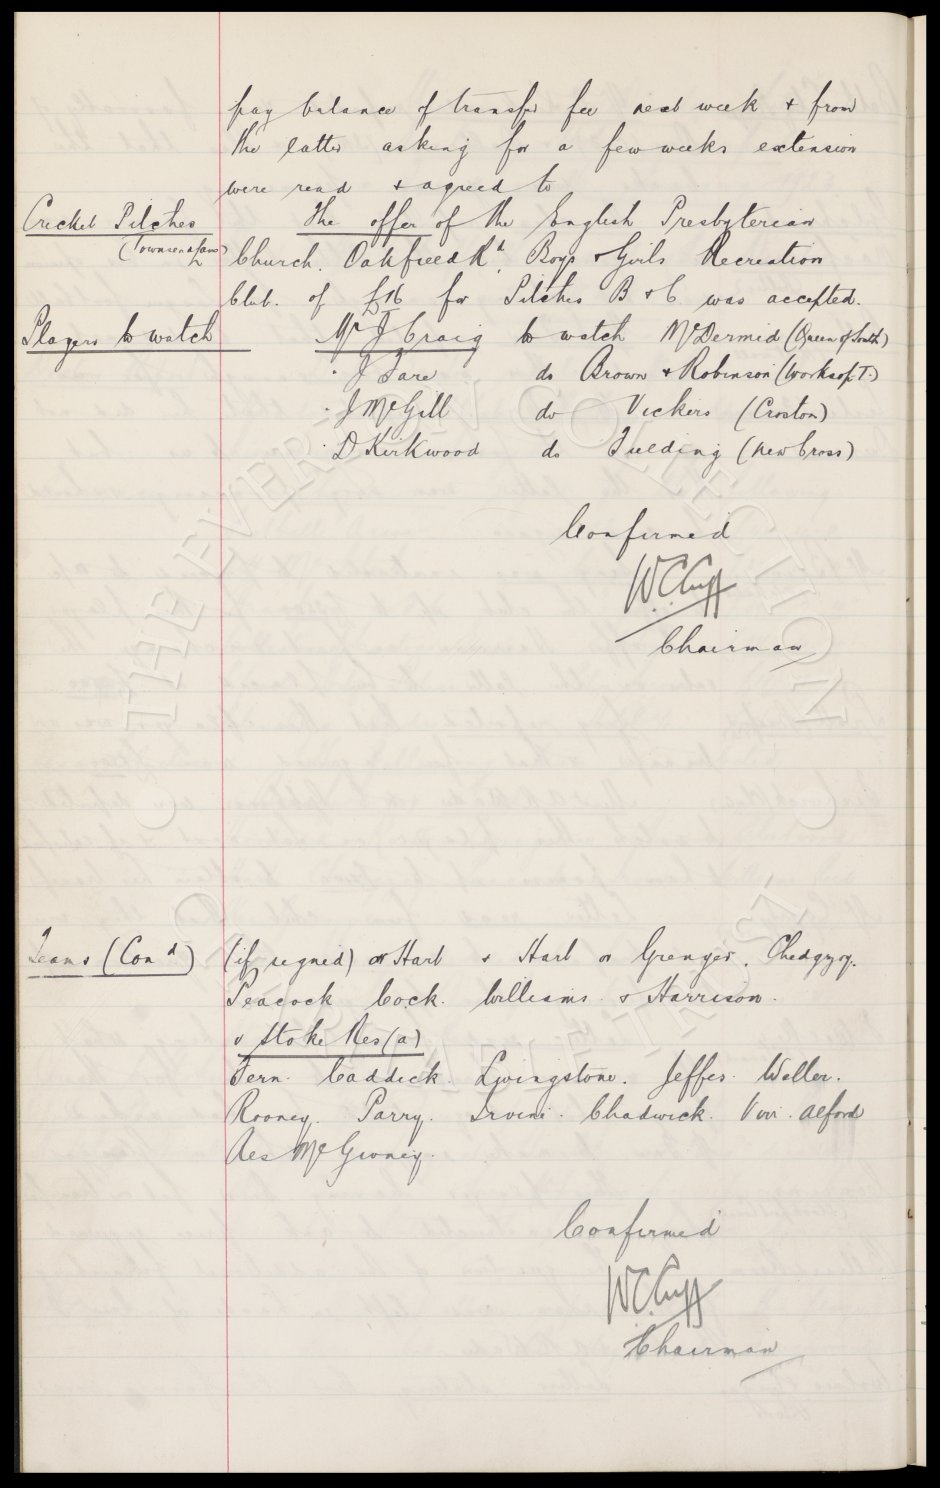 pay balance of transfer fee next week & from
the latter asking for a few weeks extension
were read & agreed to
Cricket Pitches The offer of the English Presbyterian
(Townsend Lane) Church. Oakfield Rd, Boys & Girls Recreation
Club. of £16 for Pitches B & C was accepted.
Players to watch Mr J Craig to watch McDermid (Queen of South)
" J Fare do Brown & Robinson (Worksop T.)
" J McGill do Vickers (Croston)
" D Kirkwood do Fielding (New Cross)
Confirmed
W.C. Cuff
Chairman
Teams (Cond) (if signed) or Hart & Hart or Grenyer. Chedgzoy.
Peacock Cock. Williams & Harrison.
v Stoke Res (a)
Fern. Caddick. Livingstone. Jeffes. Weller.
Rooney. Parry. Irvine. Chadwick. Virr. Alford
Res McGivney.
Confirmed
W.C. Cuff
Chairman
THE EVERTON COLLECTION